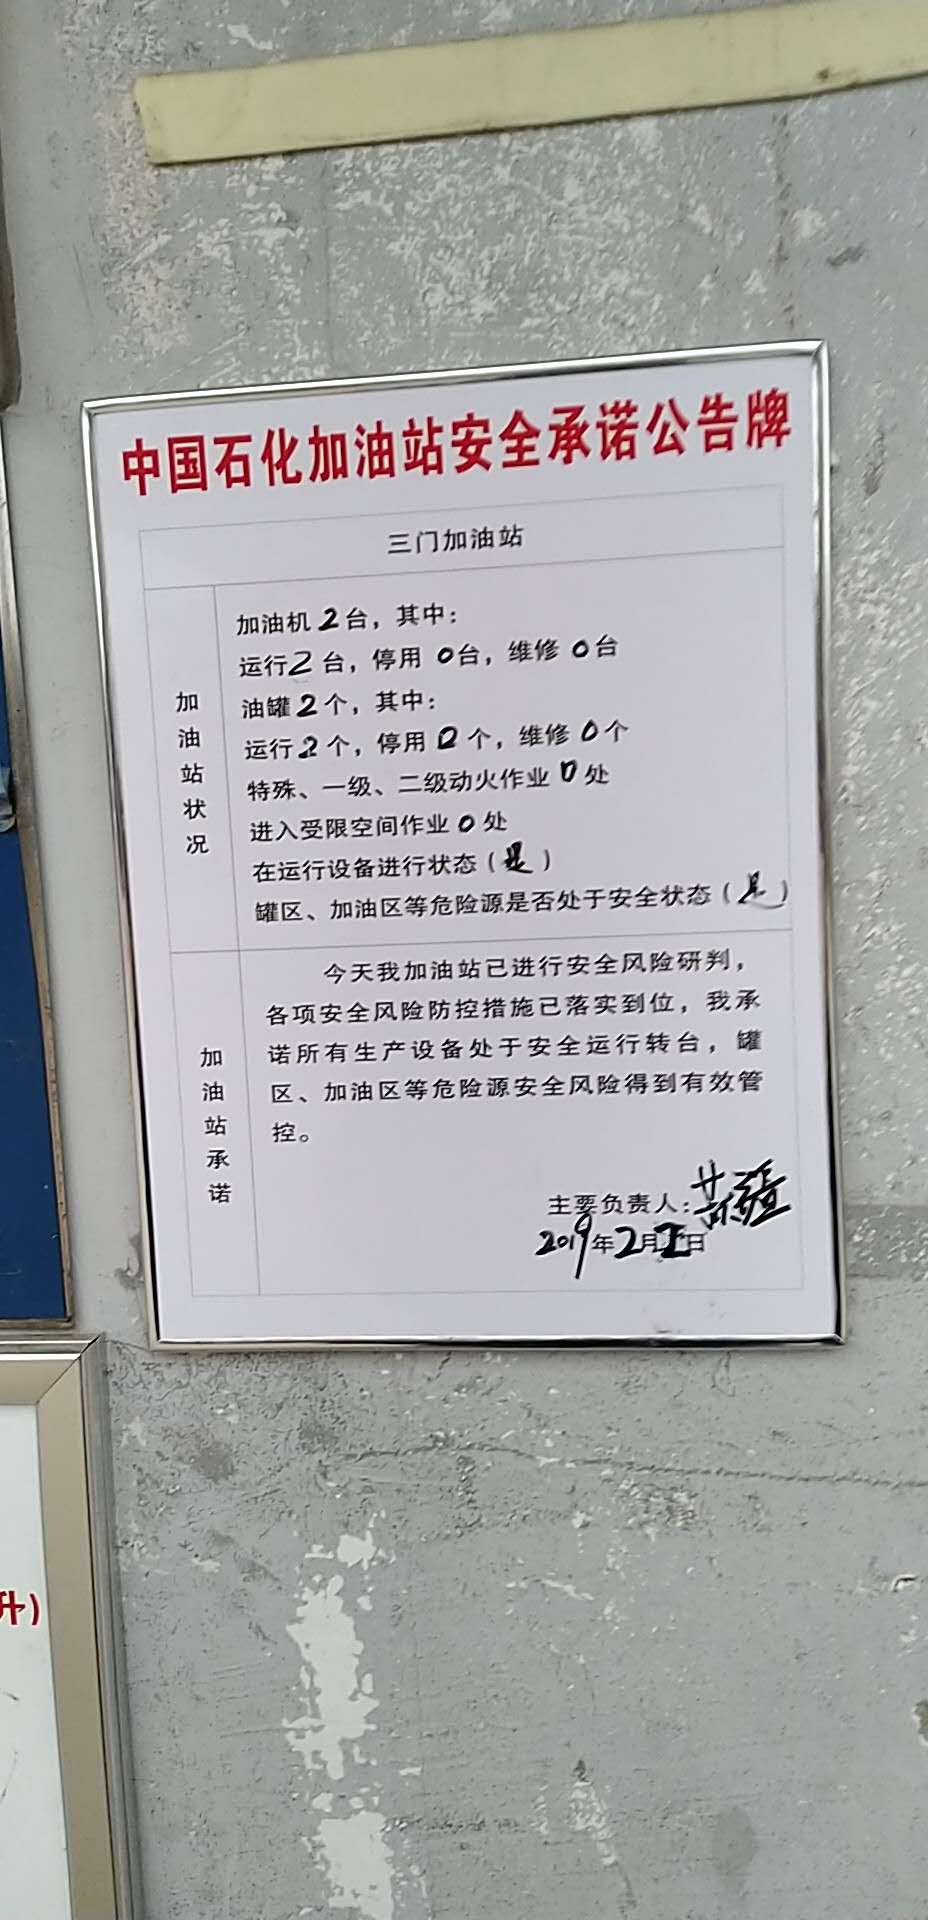 中国石化加油站安全承诺公告牌
三门加油站
加油站状况
加油机2台，其中：
运行2台，停用0台，维修0台
油罐2个，其中：
运行2个，停用0个，维修0个
特殊、一级、二级动火作业0处
进入受限空间作业0处
在运行设备进行状态（是）
罐区、加油区等危险源是否处于安全状态（是）
加油站承诺
今天我加油站已进行安全风险研判，
各项安全风险防控措施已落实到位，我承
诺所有生产设备处于安全运行转台，罐
区、加油区等危险源安全风险得到有效管
控。
主要负责人：
2019年2月 日
升）